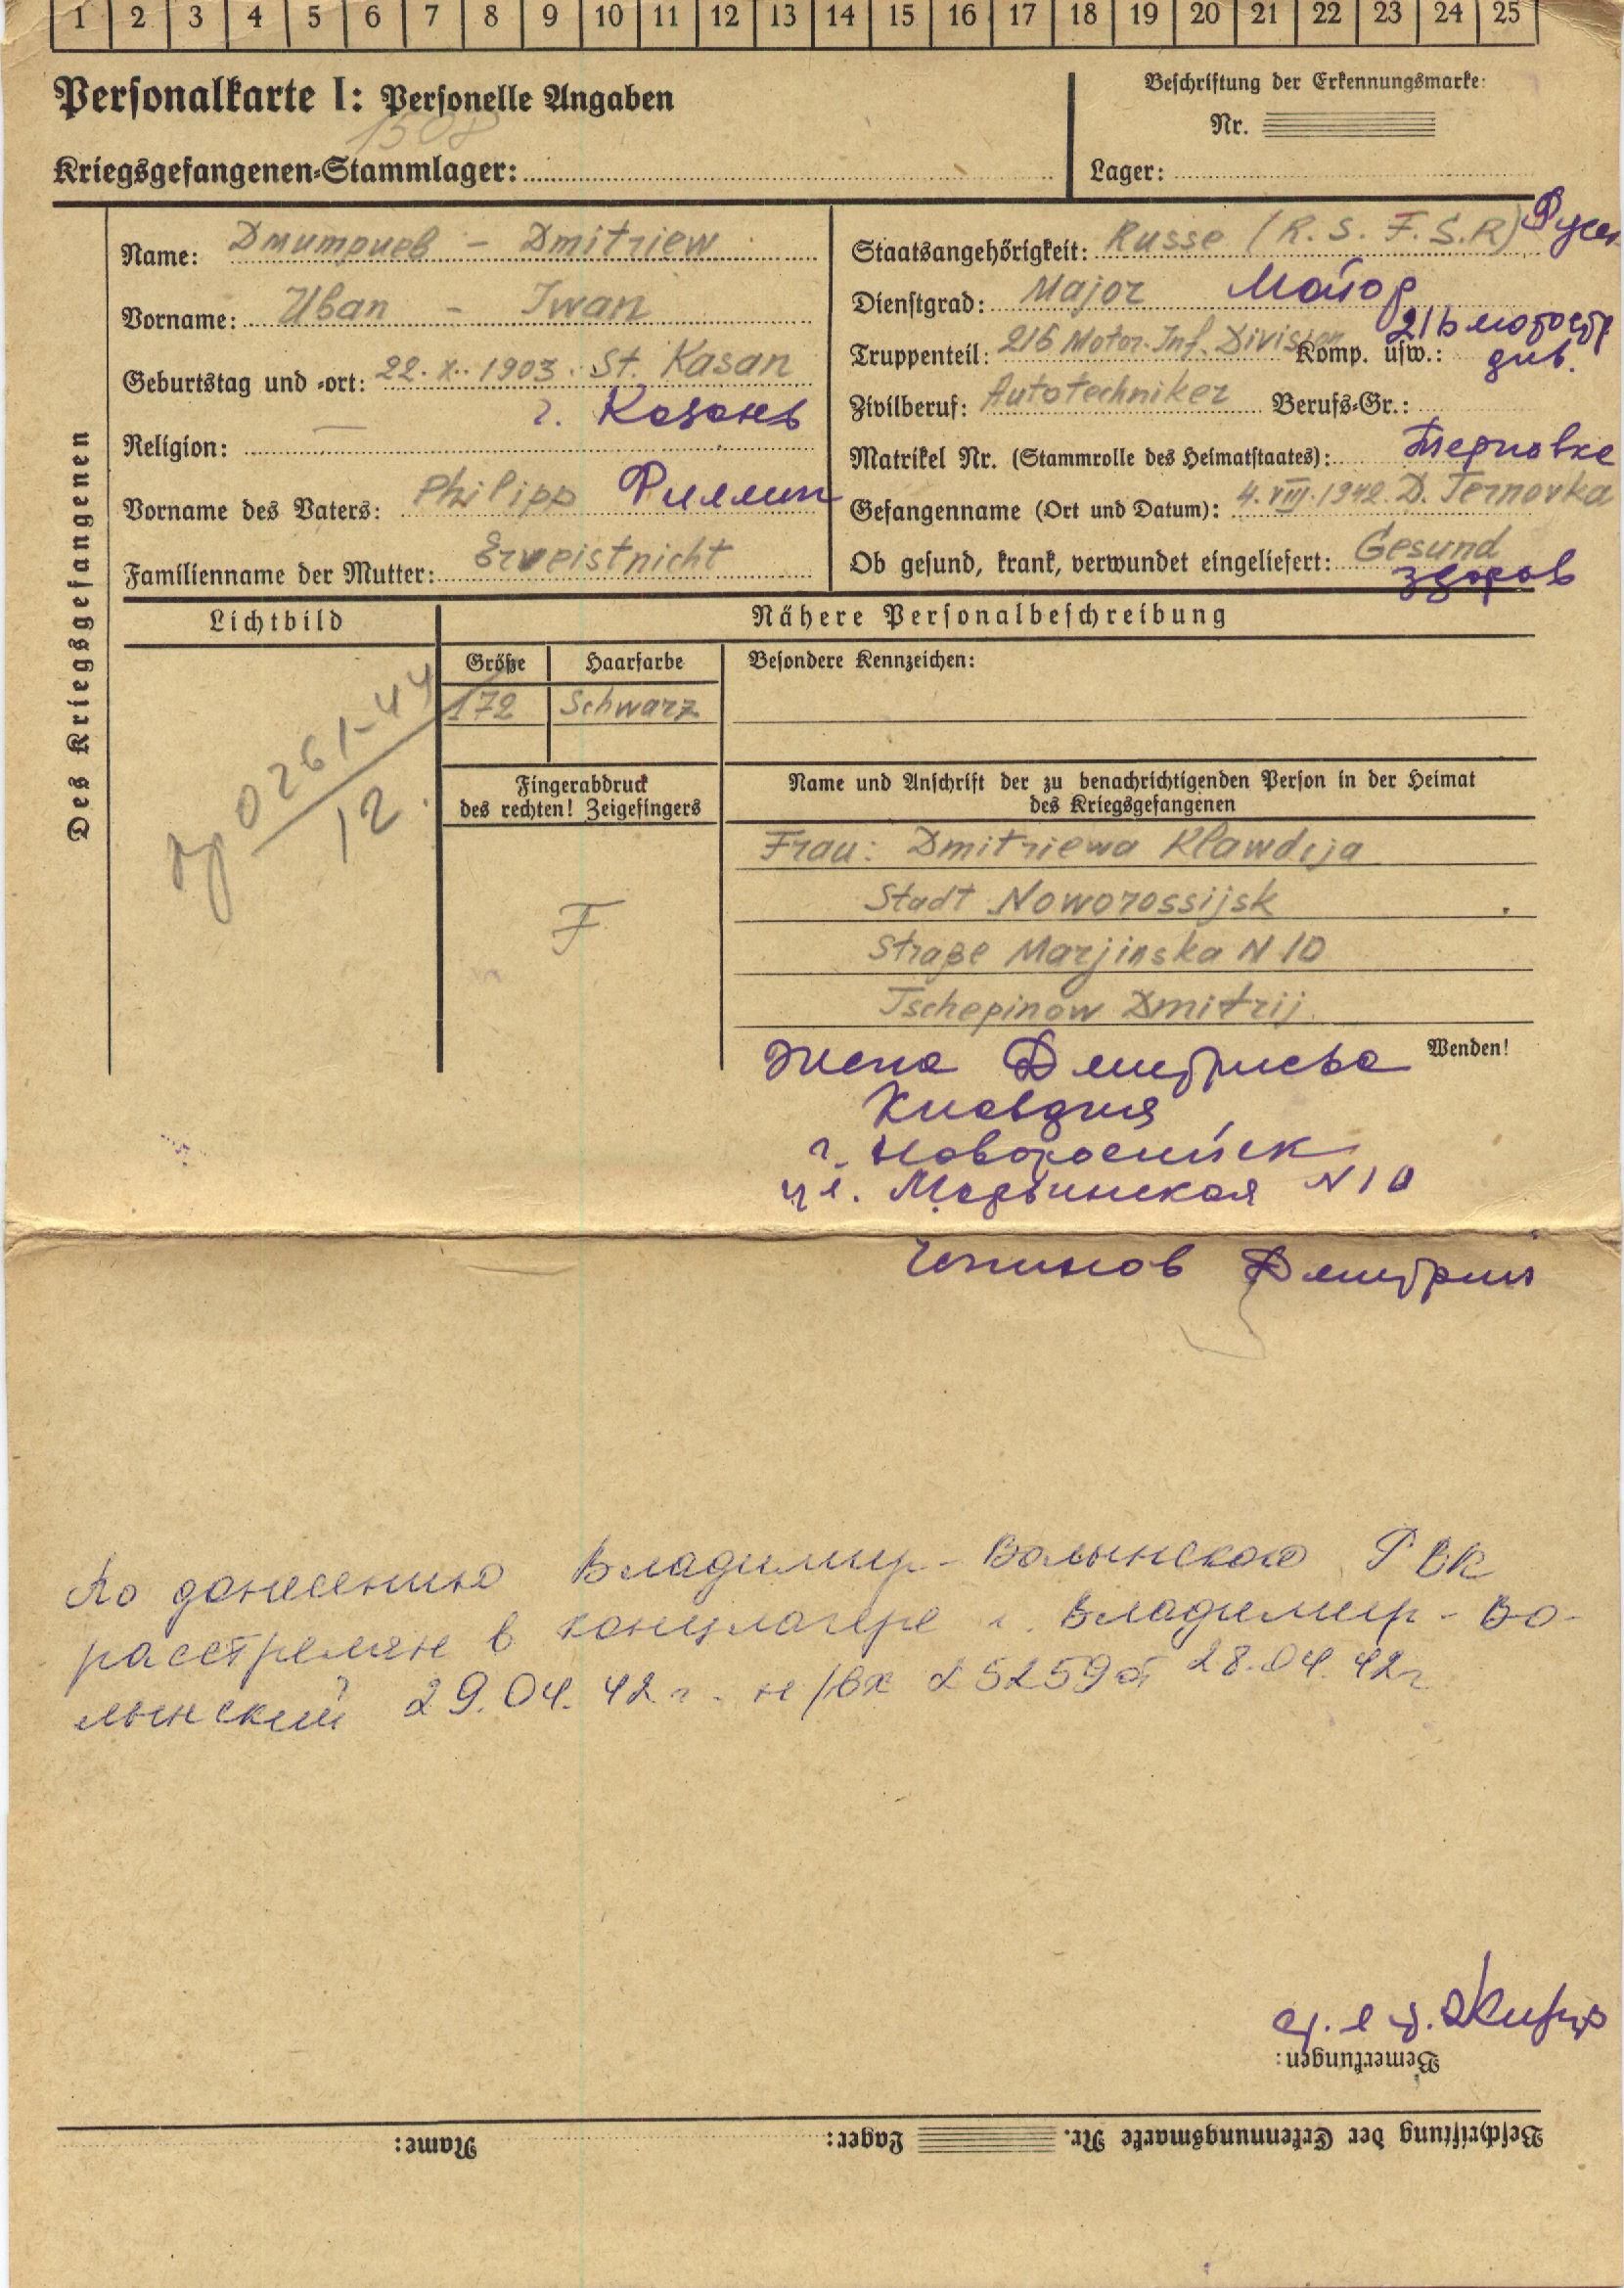 1 2 3 4 5 6 7 8 9 10 11 12 13 14 15 16 17 18 19 20 21 22 23 24 25
Personalkarte I: Personelle Angaben
1508
Kriegsgefangenen-Stammlager:
Beschriftung der Erkennungsmarke:
Nr.
Lager:
Des Kriegsgefangenen
Name: Дмитриев - Dmitriew
Vorname: Иван - Iwan
Geburtstag und -ort: 22. X. 1903. St. Kasan
г. Казань
Religion: —
Vorname des Vaters: Philipp Филипп
Familienname der Mutter: Er weist nicht
Staatsangehörigkeit: Russe (R. S. F. S. R)
Dienstgrad: Major Майор
216 мотостр
Truppenteil: 216 Motor. Inf. Division Komp. usw.: див.
Zivilberuf: Autotechniker Berufs-Gr.:
Matrikel Nr. (Stammrolle des Heimatstaates): Терновке
Gefangenname (Ort und Datum): 4. VIII. 1942. D. Ternovka
Ob gesund, krank, verwundet eingeliefert: Gesund
здоров
Lichtbild
0261-44
12
Nähere Personalbeschreibung
Größe Haarfarbe Besondere Kennzeichen:
172 Schwarz
Fingerabdruck
des rechten! Zeigefingers
F
Name und Anschrift der zu benachrichtigenden Person in der Heimat
des Kriegsgefangenen
Frau: Dmitriewa Klawdija
Stadt Noworossijsk
Straße Marjinska N 10
Tschepinow Dmitrij.
Wenden!
Жена Дмитриева
Клавдия
г. Новоросийск
ул. Марьинская N 10
Чепинов Дмитрий
По донесению Владимир-Волынского РВК
расстрелян в концлагере г. Владимир-Во-
лынский 29.04.42 г. н/вх 25259 от 28.04.42г
Bemerkungen:
Beschriftung der Erkennungsmarke Nr. Lager: Name: